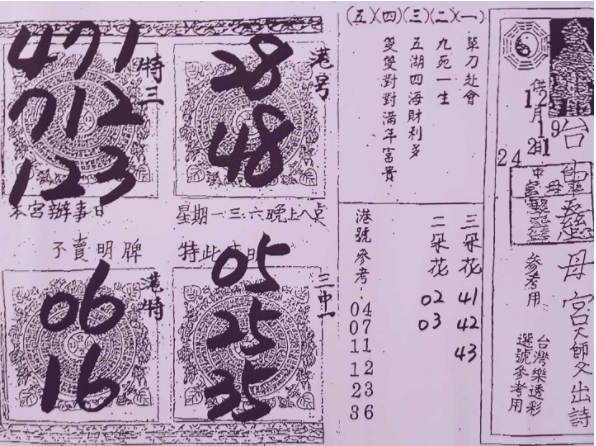 台中
靈慈母宮天師父出詩
台母
供
12月19
21
24
參考用
台灣樂透彩
選號參考用
(五)(四)(三)(二)(一)
單刀赴會
九死一生
五湖四海財利多
雙雙對對滿年富貴
三朵花
41
42
43
二朵花
02
03
港號參考:
04
07
11
12
23
36
港号
28
48
特三
471
712
123
本宮辦事日
星期一.三.六晚上八點
不賣明牌
特此
三中一
05
25
35
港特
06
16